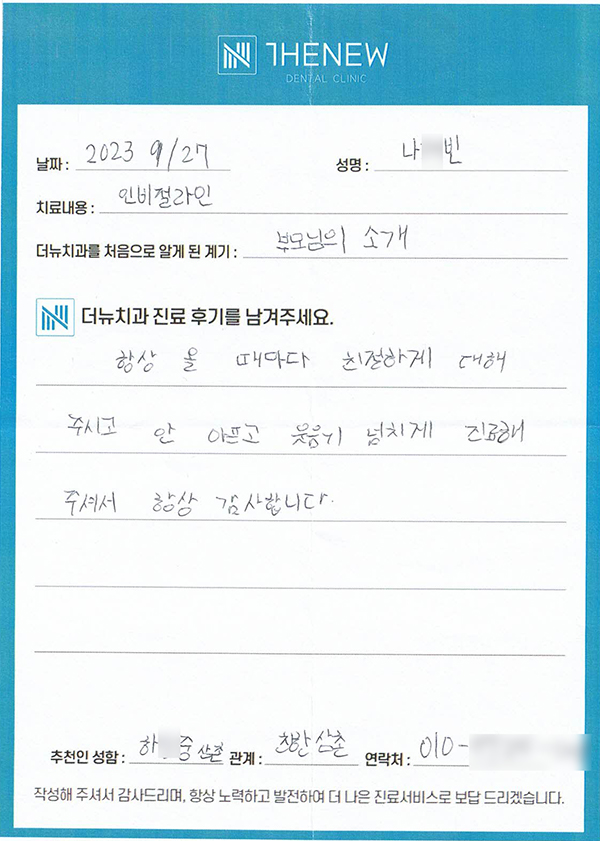 THENEW
DENTAL CLINIC
날짜 : 2023 9/27 성명 : 나 빈
치료내용 : 인비절라인
더뉴치과를 처음으로 알게 된 계기 : 부모님의 소개
더뉴치과 진료 후기를 남겨주세요.
항상 올 때마다 친절하게 대해
주시고 안 아프고 웃음기 넘치게 진료해
주셔서 항상 감사합니다.
추천인 성함 : 하 중 삼촌 관계 : 친한삼촌 연락처 : 010-
작성해 주셔서 감사드리며, 항상 노력하고 발전하여 더 나은 진료서비스로 보답 드리겠습니다.